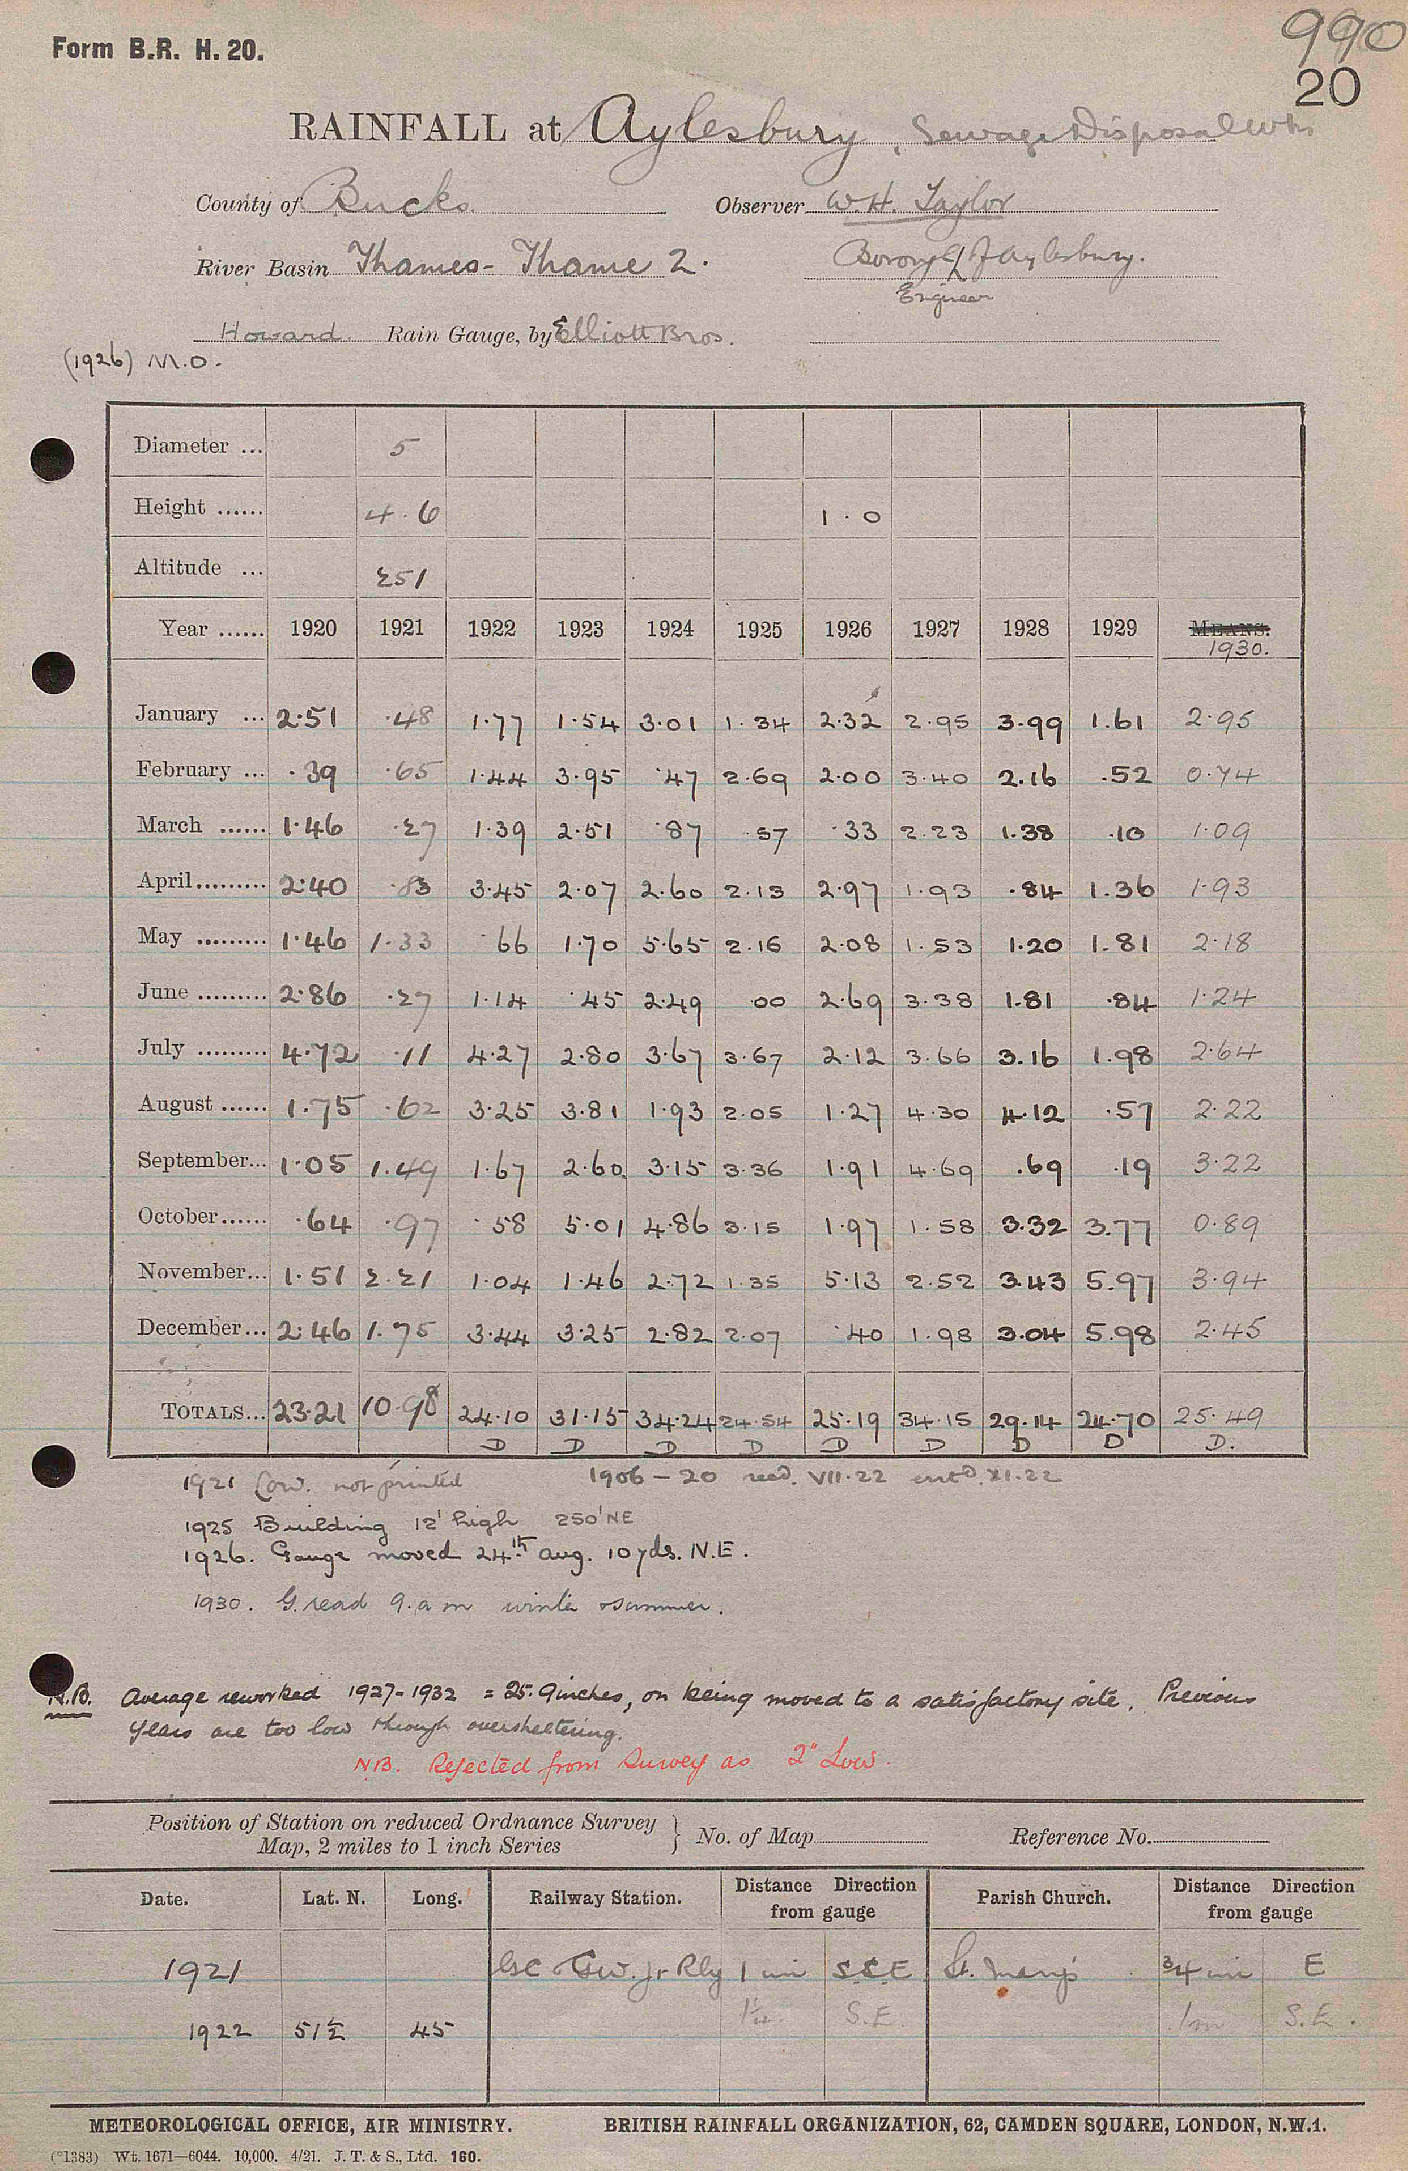 Form B.R. H. 20.
990
20
RAINFALL at Aylesbury, Sewage Disposal Wks
County of Bucks. Observer W. H. Taylor
River Basin Thames - Thame 2. Borough of Aylesbury.
Engineer
Howard. Rain Gauge, by Elliott Bros.
(1926) M.O.
Diameter ... 5
Height ...... 4.6 1.0
Altitude ... 251
Year ...... 1920 1921 1922 1923 1924 1925 1926 1927 1928 1929 MEANS.
1930.
January ... 2.51 .48 1.77 1.54 3.01 1.34 2.32 2.95 3.99 1.61 2.95
February ... .39 .65 1.44 3.95 .47 2.69 2.00 3.40 2.16 .52 0.74
March ...... 1.46 .27 1.39 2.51 .87 .57 .33 2.23 1.38 .10 1.09
April......... 2.40 .83 3.45 2.07 2.60 2.13 2.97 1.93 .84 1.36 1.93
May ......... 1.46 1.33 .66 1.70 5.65 2.16 2.08 1.53 1.20 1.81 2.18
June ......... 2.86 .27 1.14 .45 2.49 .00 2.69 3.38 1.81 .84 1.24
July ......... 4.72 .11 4.27 2.80 3.67 3.67 2.12 3.66 3.16 1.98 2.64
August ...... 1.75 .62 3.25 3.81 1.93 2.05 1.27 4.30 4.12 .57 2.22
September... 1.05 1.49 1.67 2.60 3.15 3.36 1.91 4.69 .69 .19 3.22
October...... .64 .97 .58 5.01 4.86 3.15 1.97 1.58 3.32 3.77 0.89
November... 1.51 2.21 1.04 1.46 2.72 1.35 5.13 2.52 3.43 5.97 3.94
December... 2.46 1.75 3.44 3.25 2.82 2.07 .40 1.98 3.04 5.98 2.45
TOTALS... 23.21 10.98 24.10 31.15 34.24 24.54 25.19 34.15 29.14 24.70 25.49
D D D D D D D D D.
1921 Low. not printed 1906 - 20 recd. VII.22 entd. XI.22
1925 Building 12' high 250' NE
1926. Gauge moved 24th Aug. 10 yds. N.E.
1930. G. read 9. a m winter & summer.
N.B. Average reworked 1927-1932 = 25.9 inches, on being moved to a satisfactory site. Previous
years are too low through oversheltering.
NB. Rejected from Survey as 2" Low.
Position of Station on reduced Ordnance Survey
Map, 2 miles to 1 inch Series } No. of Map Reference No.
Date. Lat. N. Long. Railway Station. Distance Direction from gauge Parish Church. Distance Direction from gauge
1921 GC & GW. Jt Rly 1 mi S.S.E St. Mary's 3/4 mi E
1922 51½ 45 S.E 1m S.E.
METEOROLOGICAL OFFICE, AIR MINISTRY. BRITISH RAINFALL ORGANIZATION, 62, CAMDEN SQUARE, LONDON, N.W.1.
(*1383) Wt. 1671—6044. 10,000. 4/21. J. T. & S., Ltd. 160.